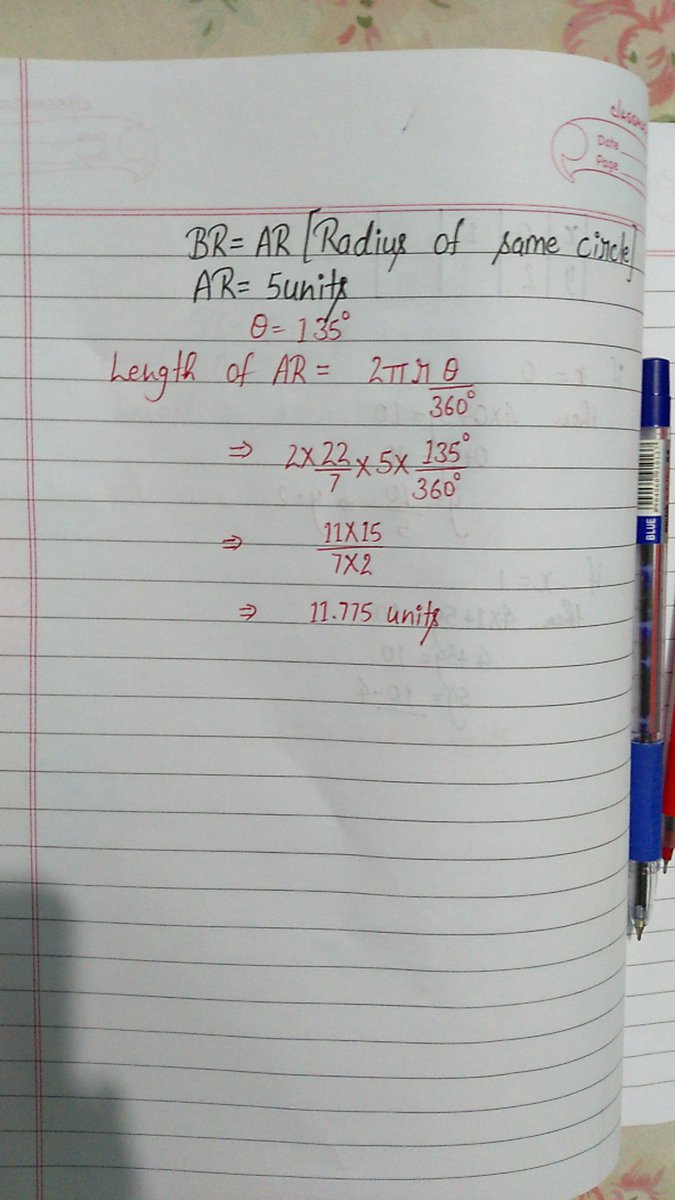 classm
Date
Page
BR = AR [Radius of same circle]
AR = 5units
θ = 135°
Length of AR = 2πr θ/360°
⇒ 2 × 22/7 × 5 × 135°/360°
⇒ 11×15/7×2
⇒ 11.775 units
BLUE